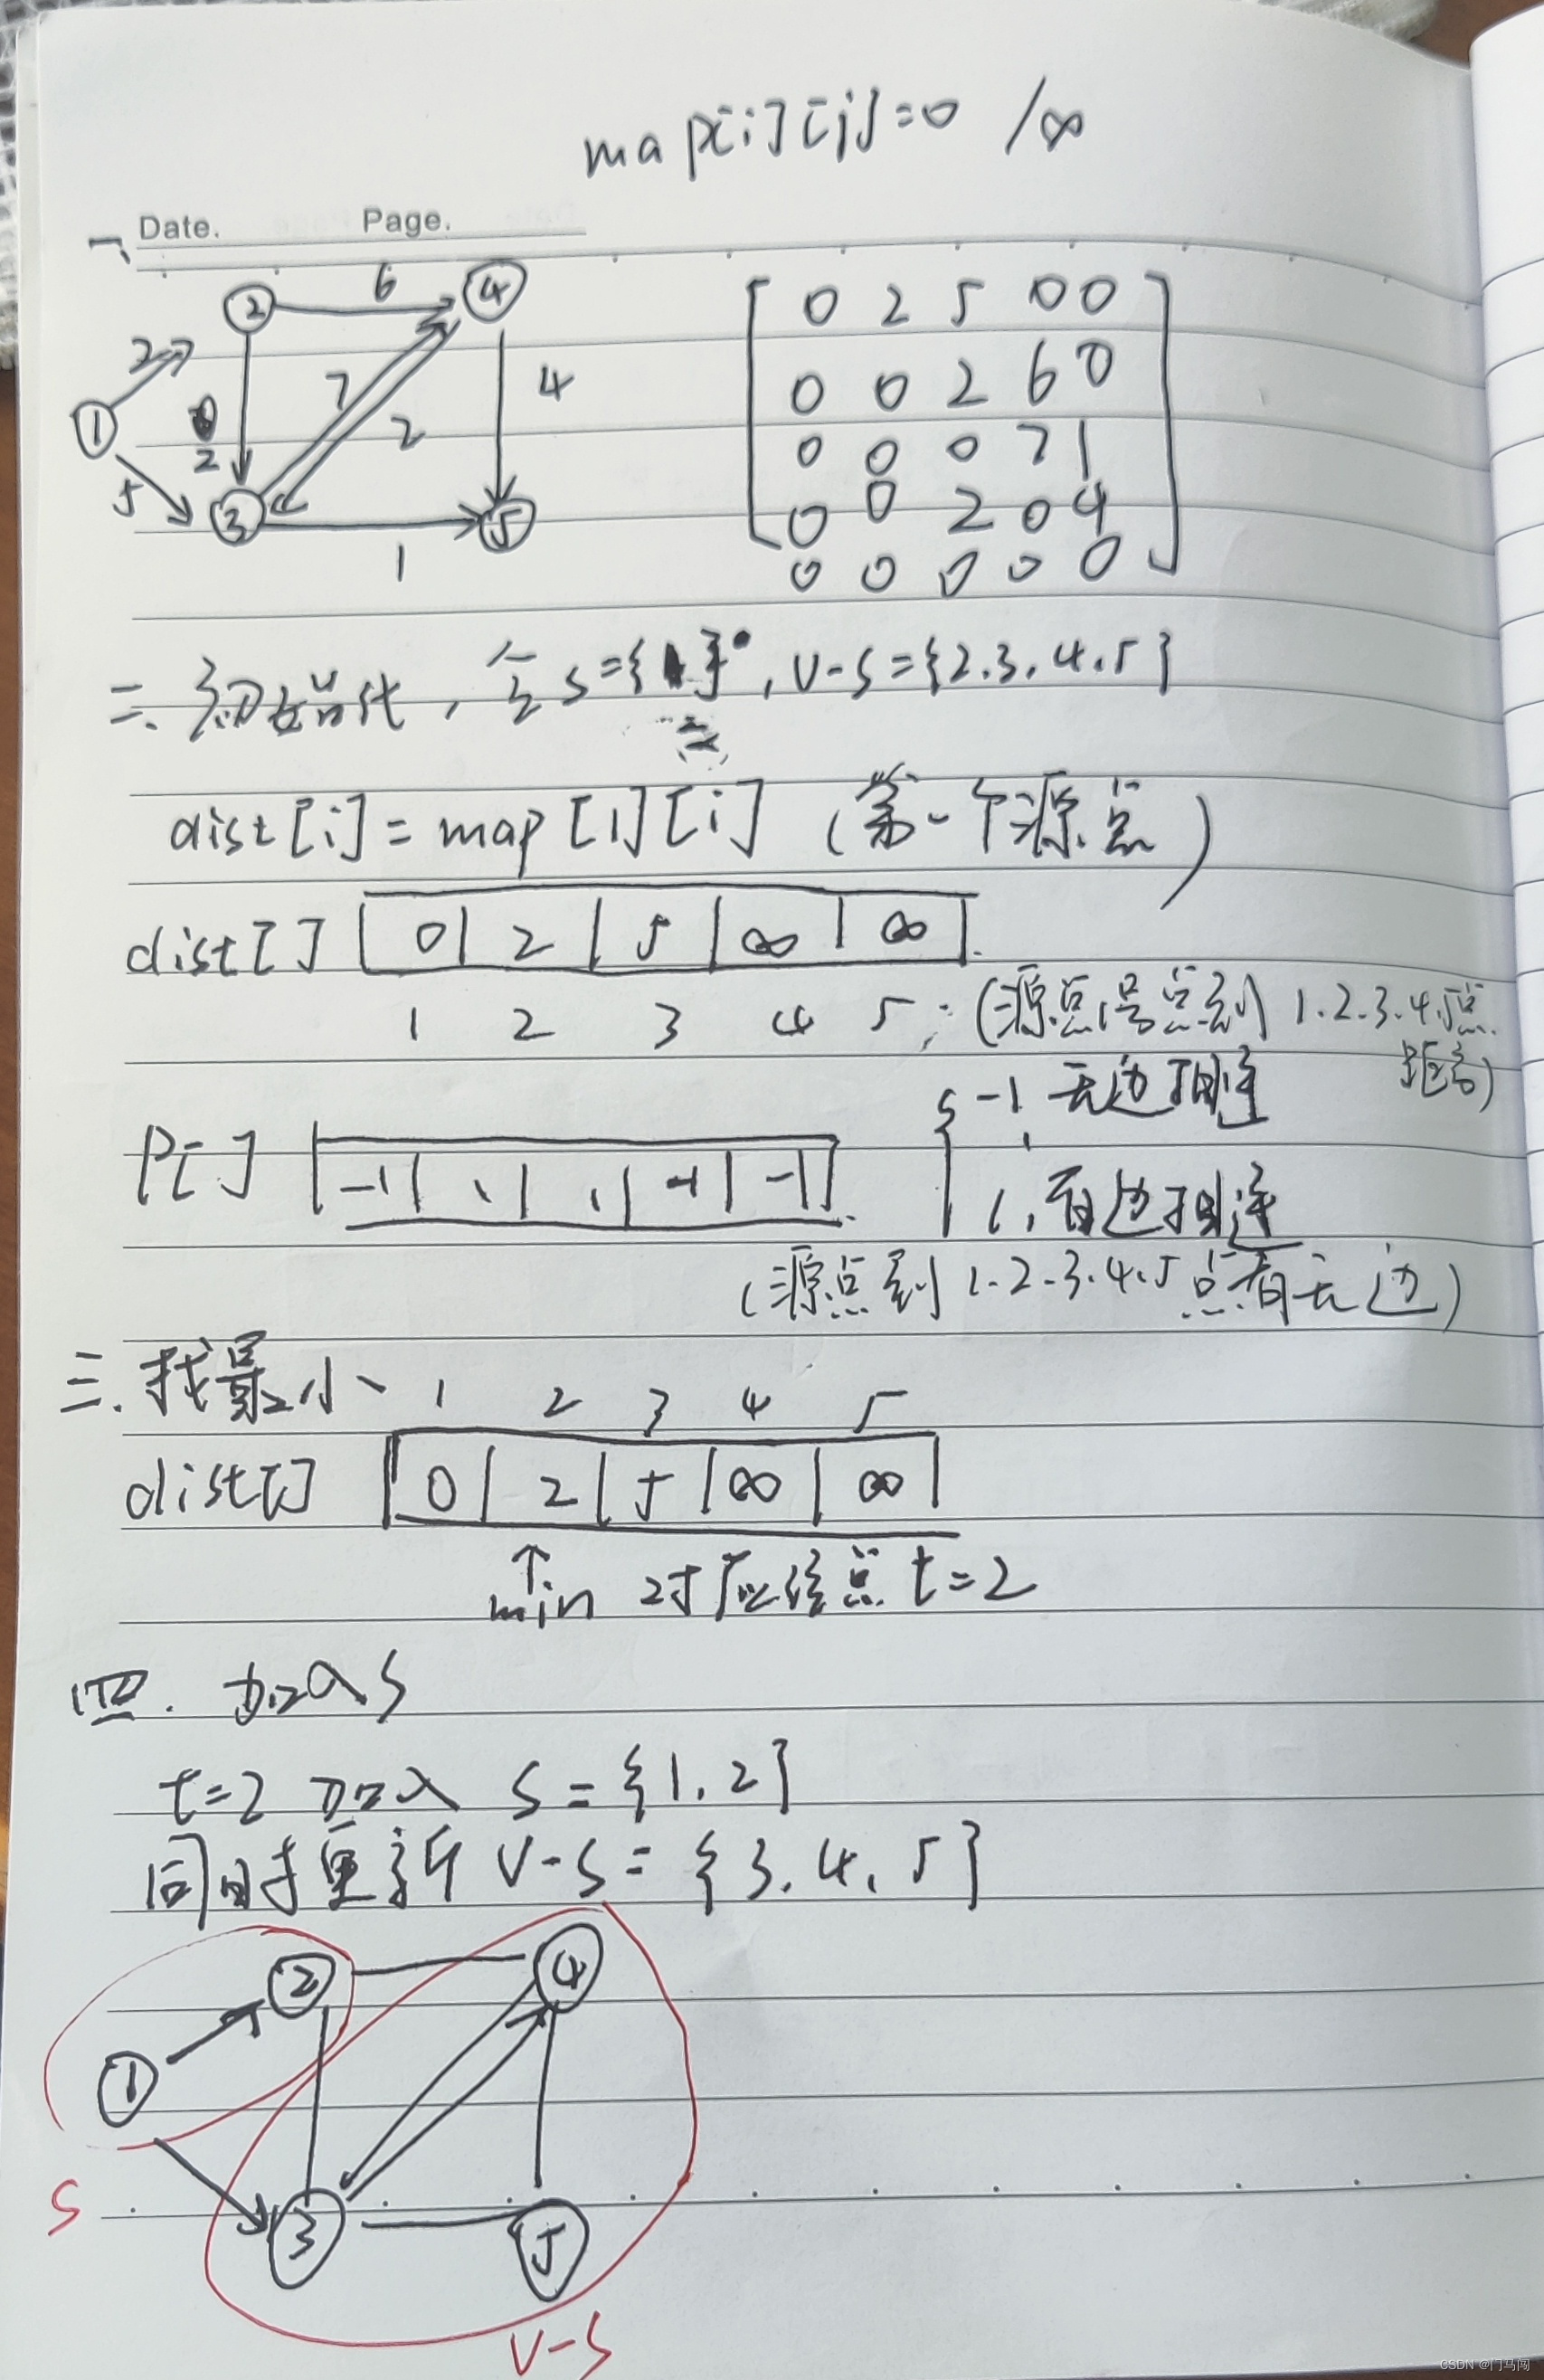 map[i][j]=0 /∞
Date. Page.
一、
2 6 4
2 7 4
1 2 2
5 3 1 5
0 2 5 0 0
0 0 2 6 0
0 0 0 7 1
0 0 2 0 4
0 0 0 0 0
二、初始化，令S={1}，V-S={2.3.4.5}
dist[i]=map[1][i] (第一个源点)
dist[] 0 2 5 ∞ ∞
1 2 3 4 5 ; (源点1号点到1.2.3.4.5点
距离)
P[] -1 1 1 -1 -1
-1, 无边相连
1, 有边相连
(源点到1.2.3.4.5点有无边)
三.找最小 1 2 3 4 5
dist[] 0 2 5 ∞ ∞
min 对应结点 t=2
四. 加入S
t=2 加入 S={1.2}
同时更新 V-S={3.4.5}
2 4
1
S 3 5
V-S
CSDN @门马网